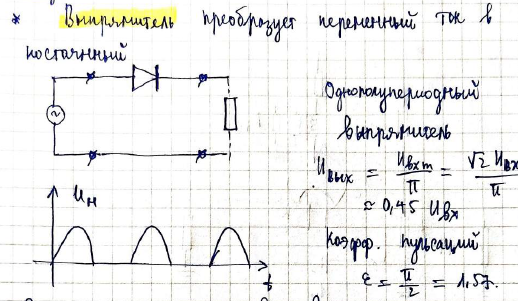 * Выпрямитель преобразует переменный ток в
постоянный
~
Однополупериодный
выпрямитель
Uвых = Uвхm/π = √2 Uвх/π
≈ 0,45 Uвх
Uн
t
Коэфф. пульсаций
ε = π/2 = 1,57.